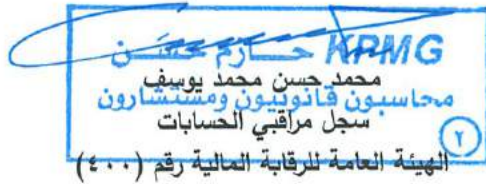 KPMG حازم حسن
محمد حسن محمد يوسف
محاسبون قانونيون ومستشارون
سجل مراقبي الحسابات
٢
الهيئة العامة للرقابة المالية رقم (٤٠٠)